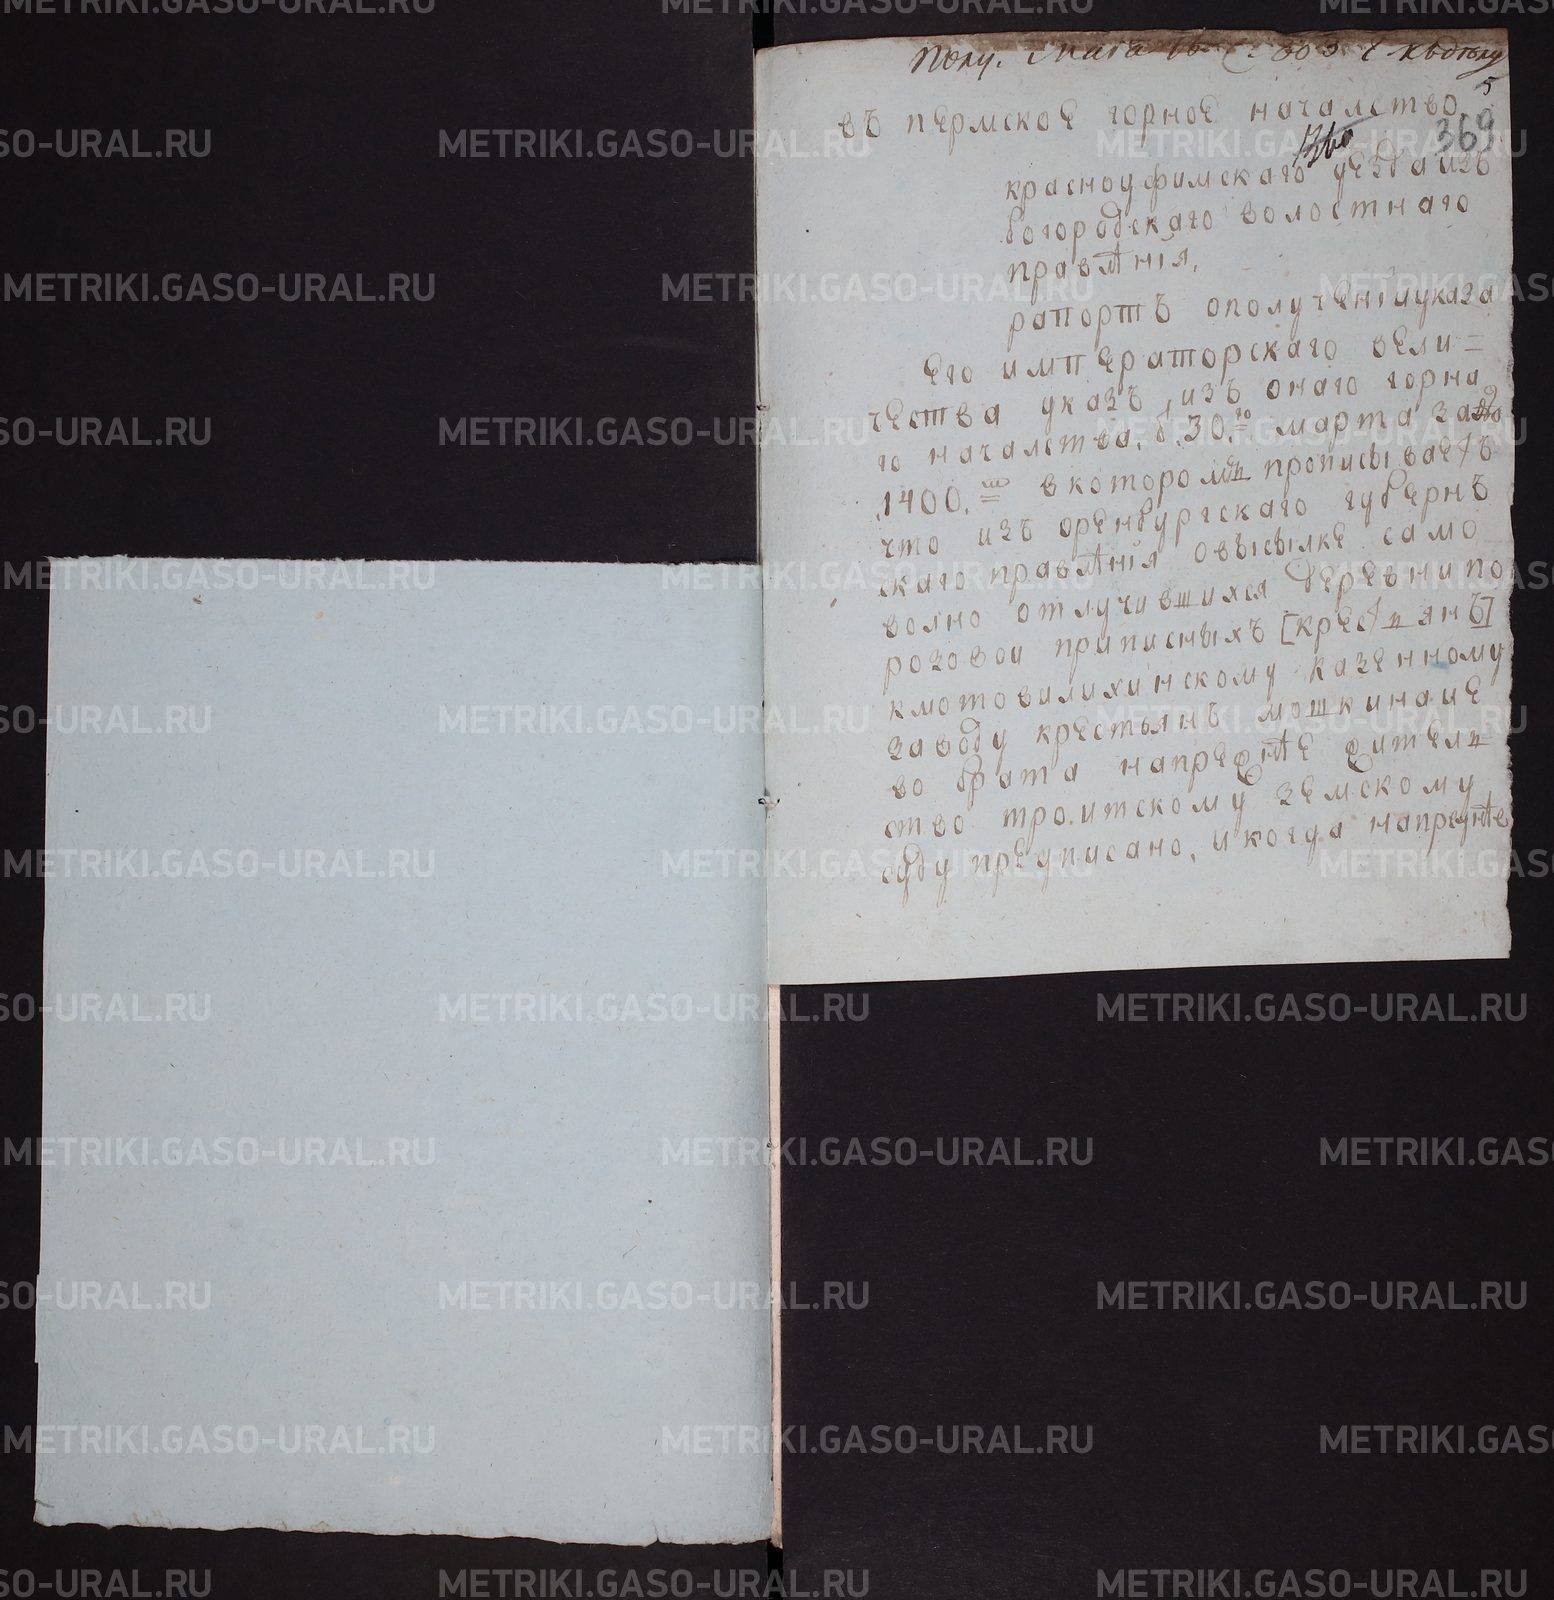 Полу. Маія 16 1803 къ делу
5
въ пермское горное началство
369
1260
красноуфимскаго уезда изъ
богородскаго волостнаго
правлѣнія,
рапортъ ополученіи указа
Его императорскаго вели=
чества указъ, изъ онаго горна
го началства, б. 30.го марта за №
.1400.мъ вкоторомъ прописываетъ
что изъ оренбургскаго губернъ
скаго правлѣнія овысылке само
волно отлучившихся деревни по
розовои приписныхъ [крестьянъ]
кмотовилихинскому казенному
заводу крестьянъ мошкина ие
во брата напрежнѣе жител
ство троитскому земскому
суду предписано, икогда напрежнѣе
METRIKI.GASO-URAL.RU